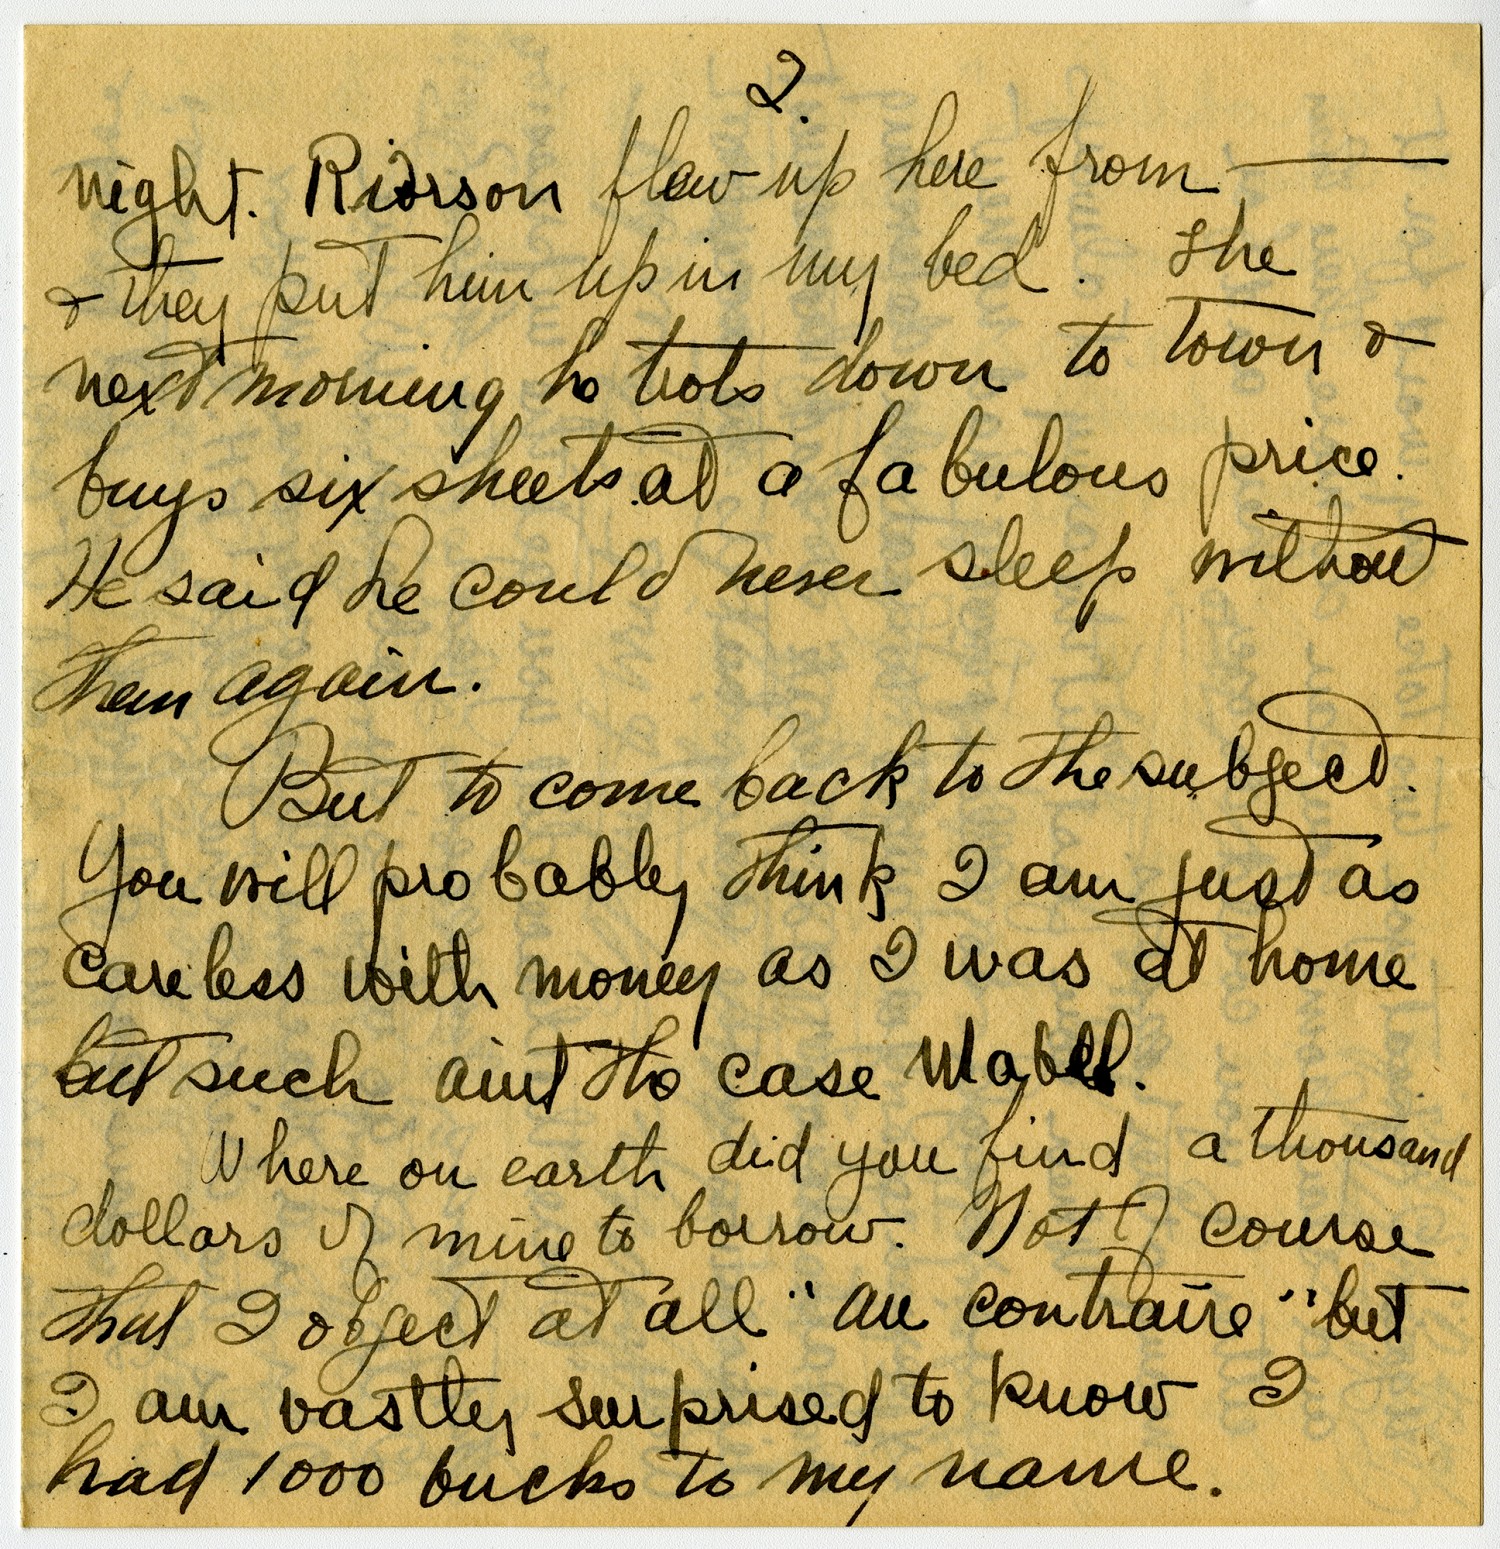 2.
night. Rierson flew up here from ———
& they put him up in my bed. The
next morning he trots down to town &
buys six sheets at a fabulous price.
He said he could never sleep without
them again.
But to come back to the subject.
You will probably think I am just as
careless with money as I was at home
but such aint the case Mabel.
Where on earth did you find a thousand
dollars of mine to borrow. Not of course
that I object at all "au contraire" but
I am vastly surprised to know I
had 1000 bucks to my name.